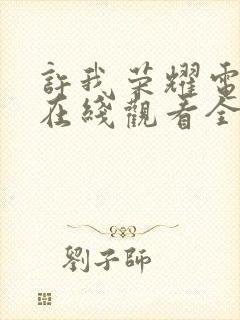 許我荣耀電
在綫觀看全
劉子師